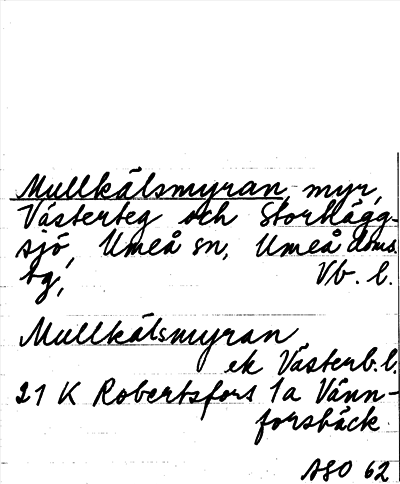 Mullkälsmyran, myr,
Västerteg och Storhägg-
sjö, Umeå sn, Umeå doms.
tg, Vb. l.
Mullkälsmyran
ek Västerb. l.
21 K Robertsfors 1a Vänn-
forsbäck
ASO 62